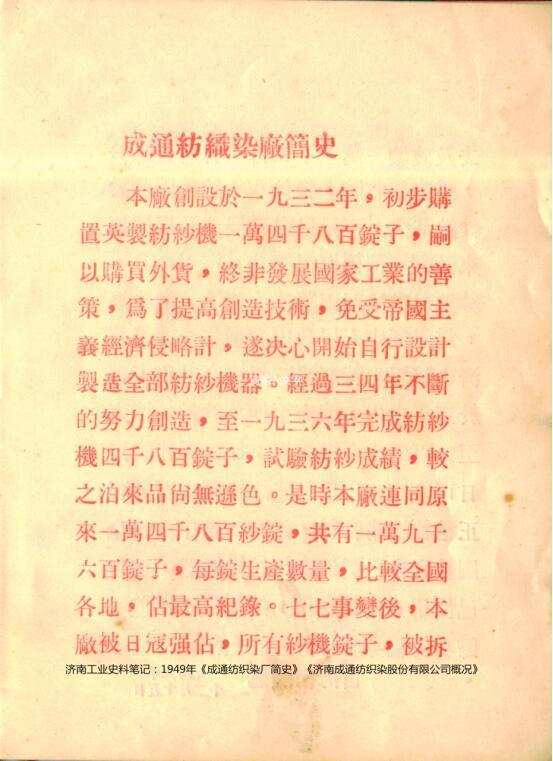 成通紡織染廠簡史
本廠創設於一九三二年，初步購
置英製紡紗機一萬四千八百錠子，嗣
以購買外貨，終非發展國家工業的善
策，爲了提高創造技術，免受帝國主
義經濟侵略計，遂决心開始自行設計
製造全部紡紗機器。經過三四年不斷
的努力創造，至一九三六年完成紡紗
機四千八百錠子，試驗紡紗成績，較
之泊來品尙無遜色。是時本廠連同原
來一萬四千八百紗錠，共有一萬九千
六百錠子，每錠生產數量，比較全國
各地，佔最高紀錄。七七事變後，本
廠被日冠强佔，所有紗機錠子，被拆
济南工业史料笔记：1949年《成通纺织染厂简史》《济南成通纺织染股份有限公司概况》